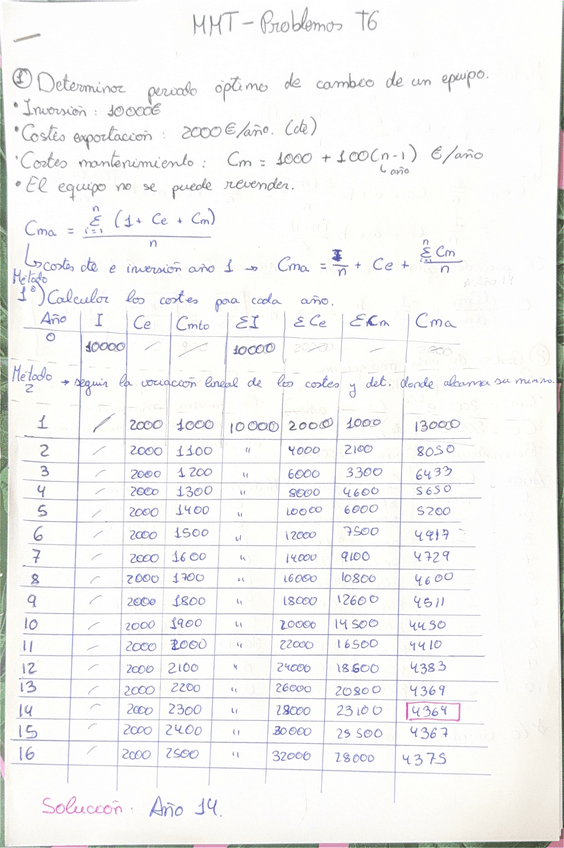 MMT - Problemas T6
① Determinar periodo óptimo de cambio de un equipo.
• Inversión: 10000€
• Costes explotación: 2000€/año. (cte)
• Costes mantenimiento: Cm = 1000 + 100(n-1) €/año
↳ año
• El equipo no se puede revender.
Cma = Σⁿᵢ₌₁ (1 + Ce + Cm) / n
↳ costes de e inversión año 1 → Cma = I/n + Ce + Σⁿᵢ₌₁ Cm / n
Método
1º) Calcular los costes para cada año.
Año I Ce Cmto ΣI ΣCe ΣCm Cma
0 10000 / 10000 /
Método 2 → seguir la variación lineal de los costes y det. donde alcanza su mínimo.
1 / 2000 1000 10000 2000 1000 13000
2 / 2000 1100 " 4000 2100 8050
3 / 2000 1200 " 6000 3300 6433
4 / 2000 1300 " 8000 4600 5650
5 / 2000 1400 " 10000 6000 5200
6 / 2000 1500 " 12000 7500 4917
7 / 2000 1600 " 14000 9100 4729
8 / 2000 1700 " 16000 10800 4600
9 / 2000 1800 " 18000 12600 4511
10 / 2000 1900 " 20000 14500 4450
11 / 2000 2000 " 22000 16500 4410
12 / 2000 2100 " 24000 18600 4383
13 / 2000 2200 " 26000 20800 4369
14 / 2000 2300 " 28000 23100 4364
15 / 2000 2400 " 30000 25500 4367
16 / 2000 2500 " 32000 28000 4375
Solución. Año 14.